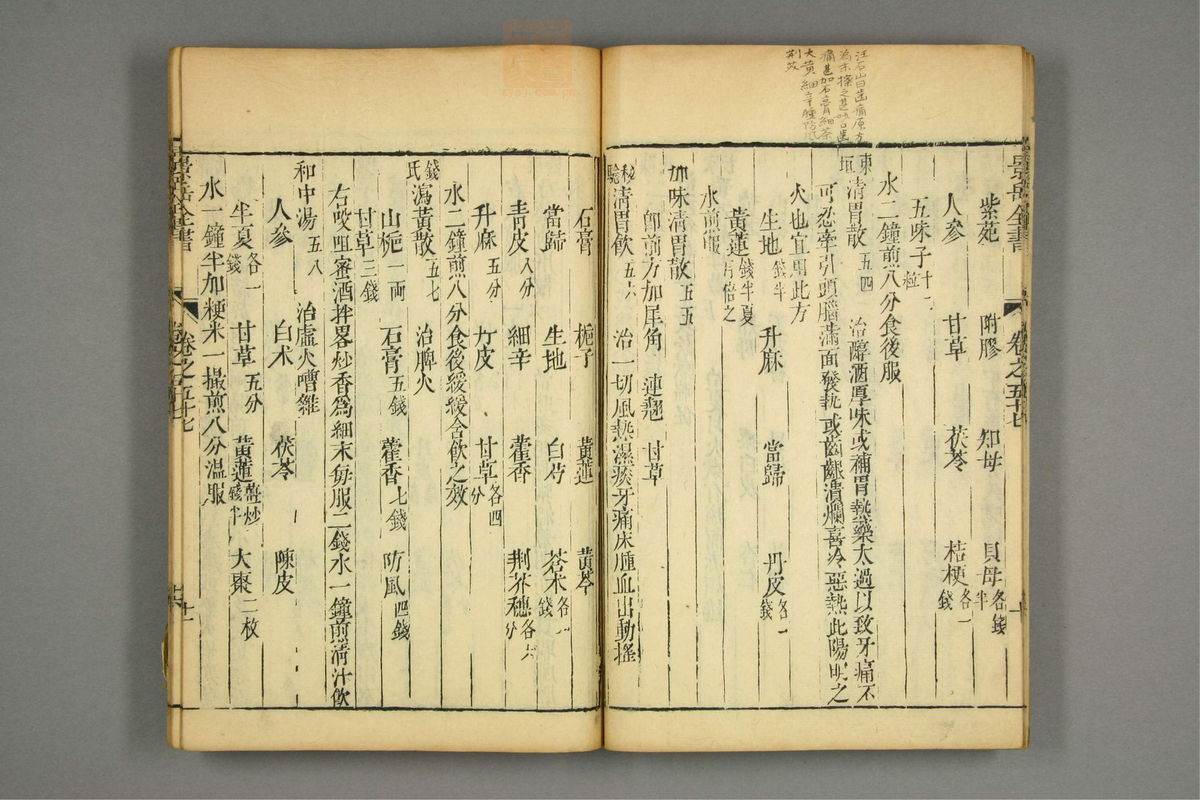 汪石山曰齒痛原方
為末擦之甚妙口
痛甚加石膏細茶
大黃細辛腫防風
荊芥
景岳全書
卷之五十七
紫菀 附膠 知母 貝母各錢半
人參 甘草 茯苓 桔梗各一錢
五味子十一粒
水二鐘煎八分食後服
東垣清胃散五四 治醇酒厚味或補胃熱藥太過以致牙痛不
可忍牽引頭腦滿面發熱或齒齦潰爛喜冷惡熱此陽明之
火也宜用此方
生地錢半 升麻 當歸 丹皮各一錢
黃蓮錢半夏月倍之
水煎服
加味清胃散五五
即前方加犀角 連翹 甘草
秘驗清胃飲五六 治一切風熱濕痰牙痛床腫血出動搖
石膏 梔子 黃蓮 黃芩
當歸 生地 白芍 蒼朮各一錢
青皮八分 細辛 藿香 荊芥穗各六分
升麻五分 丹皮 甘草各四分
水二鐘煎八分食後緩緩含飲之效
錢氏瀉黃散五七 治脾火
山梔一兩 石膏五錢 藿香七錢 防風四錢
甘草三錢
右㕮咀蜜酒拌畧炒香為細末每服二錢水一鐘煎清汁飲
和中湯五八 治虛火嘈雜
人參 白朮 茯苓 陳皮
半夏各一錢 甘草五分 黃蓮薑炒錢半 大棗二枚
水一鐘半加粳米一撮煎八分溫服
景岳全書
卷之五十七
十一